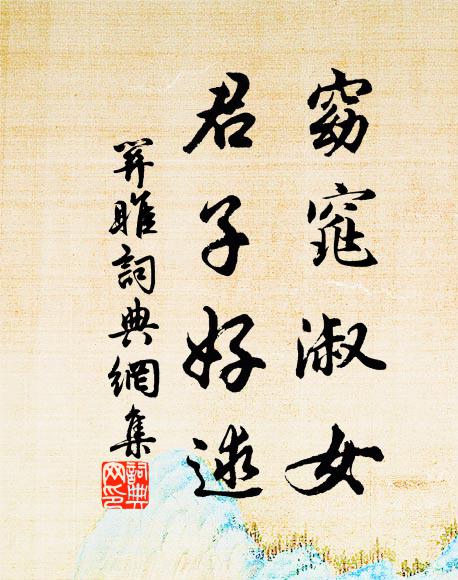 窈窕淑女
君子好逑
關雎詞典網集
詞典網印